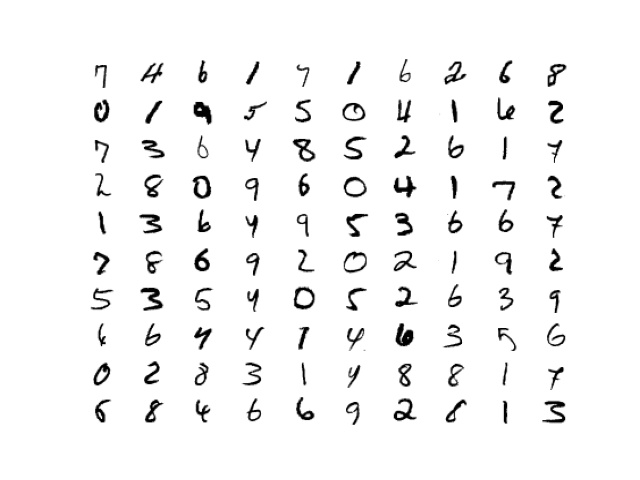 7 4 6 1 7 1 6 2 6 8
0 1 9 5 5 0 4 1 6 2
7 3 6 4 8 5 2 6 1 7
2 8 0 9 6 0 4 1 7 2
1 3 6 4 9 5 3 6 6 7
7 8 6 9 2 0 2 1 9 2
5 3 5 4 0 5 2 6 3 9
6 6 4 1 4 6 3 5 6
0 2 8 3 1 4 8 8 1 7
6 8 4 6 6 9 2 8 1 3